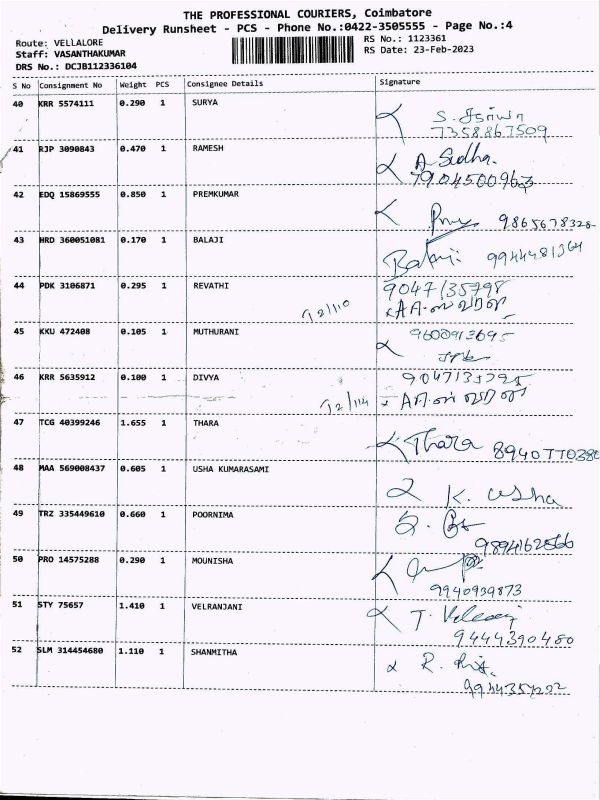 THE PROFESSIONAL COURIERS, Coimbatore
Delivery Runsheet - PCS - Phone No.:0422-3505555 - Page No.:4
Route: VELLALORE
RS No.: 1123361
Staff: VASANTHAKUMAR
RS Date: 23-Feb-2023
DRS No.: DCJB112336104
S No Consignment No Weight PCS Consignee Details Signature
40 KRR 5574111 0.290 1 SURYA
7358867509
41 RJP 3090843 0.470 1 RAMESH A Sudha.
7904500963
42 EDQ 15869555 0.850 1 PREMKUMAR
9865678328
43 HRD 360051081 0.170 1 BALAJI Balaji 9944481364
44 PDK 3106871 0.295 1 REVATHI 9047135798
T2/110
45 KKU 472408 0.105 1 MUTHURANI 9600913695
46 KRR 5635912 0.100 1 DIVYA
T2/114
47 TCG 40399246 1.655 1 THARA Thara 8940770380
48 MAA 569008437 0.605 1 USHA KUMARASAMI K. Usha
49 TRZ 335449610 0.660 1 POORNIMA
9894162566
50 PRO 14575288 0.290 1 MOUNISHA
9940939873
51 STY 75657 1.410 1 VELRANJANI
9444390480
52 SLM 314454680 1.110 1 SHANMITHA